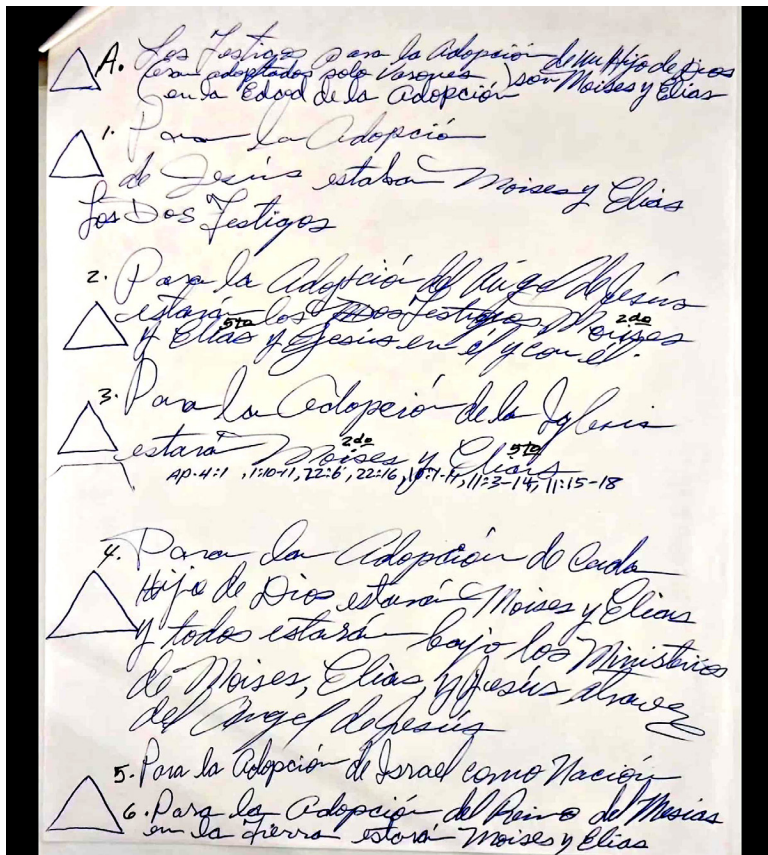 A. Los Testigos para la Adopción de un Hijo de Dios
(eran adoptados solo Varones) son Moises y Elias
en la Edad de la Adopción
1. Para la Adopción
de Jesús estaban Moises y Elias
Los Dos Testigos
2. Para la Adopción del Angel de Jesús
estarán los Dos Testigos, Moises 2do
y Elias 5to y Jesús en él y con él.
3. Para la Adopción de la Iglesia
estará Moises 2do y Elias 5to
AP. 4:1, 1:10-11, 22:6, 22:16, 10:1-11, 11:3-14, 11:15-18
4. Para la Adopción de Cada
Hijo de Dios estará Moises y Elias
y todos estarán bajo los Ministerios
de Moises, Elias, y Jesús atravez
del Angel de Jesús
5. Para la Adopción de Israel como Nación
6. Para la Adopción del Reino del Mesias
en la Tierra estará Moises y Elias